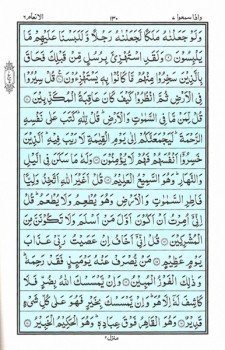 الانعام ٦
١٣٠
واذا سمعوا ٧
وَلَوْ جَعَلْنٰهُ مَلَكًا لَّجَعَلْنٰهُ رَجُلًا وَّلَلَبَسْنَا عَلَيْهِمْ مَّا
يَلْبِسُوْنَ ۝ وَلَقَدِ اسْتُهْزِئَ بِرُسُلٍ مِّنْ قَبْلِكَ فَحَاقَ
بِالَّذِيْنَ سَخِرُوْا مِنْهُمْ مَّا كَانُوْا بِهٖ يَسْتَهْزِءُوْنَ ۝ قُلْ سِيْرُوْا
فِى الْاَرْضِ ثُمَّ انْظُرُوْا كَيْفَ كَانَ عَاقِبَةُ الْمُكَذِّبِيْنَ ۝
قُلْ لِّمَنْ مَّا فِى السَّمٰوٰتِ وَالْاَرْضِ قُلْ لِّلّٰهِ كَتَبَ عَلٰى نَفْسِهِ
الرَّحْمَةَ لَيَجْمَعَنَّكُمْ اِلٰى يَوْمِ الْقِيٰمَةِ لَا رَيْبَ فِيْهِ اَلَّذِيْنَ
خَسِرُوْٓا اَنْفُسَهُمْ فَهُمْ لَا يُؤْمِنُوْنَ ۝ وَلَهٗ مَا سَكَنَ فِى الَّيْلِ
وَالنَّهَارِ وَهُوَ السَّمِيْعُ الْعَلِيْمُ ۝ قُلْ اَغَيْرَ اللّٰهِ اَتَّخِذُ وَلِيًّا
فَاطِرِ السَّمٰوٰتِ وَالْاَرْضِ وَهُوَ يُطْعِمُ وَلَا يُطْعَمُ قُلْ
اِنِّىْٓ اُمِرْتُ اَنْ اَكُوْنَ اَوَّلَ مَنْ اَسْلَمَ وَلَا تَكُوْنَنَّ مِنَ
الْمُشْرِكِيْنَ ۝ قُلْ اِنِّىْٓ اَخَافُ اِنْ عَصَيْتُ رَبِّىْ عَذَابَ
يَوْمٍ عَظِيْمٍ ۝ مَنْ يُّصْرَفْ عَنْهُ يَوْمَئِذٍ فَقَدْ رَحِمَهٗ
وَذٰلِكَ الْفَوْزُ الْمُبِيْنُ ۝ وَاِنْ يَّمْسَسْكَ اللّٰهُ بِضُرٍّ فَلَا
كَاشِفَ لَهٗٓ اِلَّا هُوَ وَاِنْ يَّمْسَسْكَ بِخَيْرٍ فَهُوَ عَلٰى كُلِّ شَىْءٍ
قَدِيْرٌ ۝ وَهُوَ الْقَاهِرُ فَوْقَ عِبَادِهٖ وَهُوَ الْحَكِيْمُ الْخَبِيْرُ ۝
منزل ٢